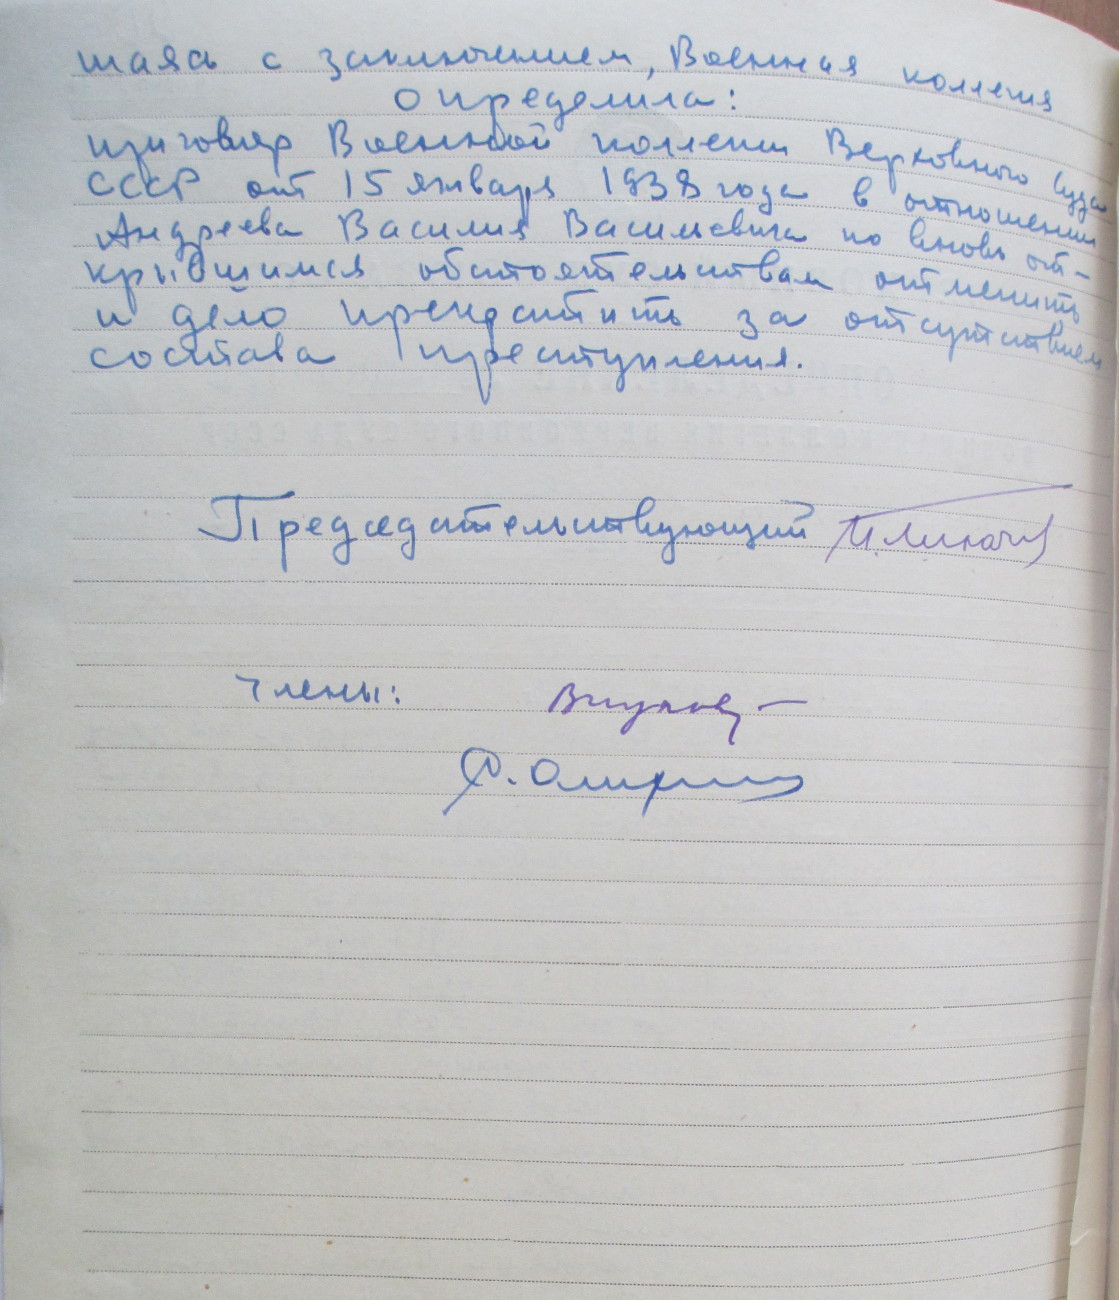 шаясь с заключением, Военная коллегия
определила:
приговор Военной коллегии Верховного Суда
СССР от 15 января 1938 года в отношении
Андреева Василия Васильевича по вновь от-
крывшимся обстоятельствам отменить
и дело прекратить за отсутствием
состава преступления.
Председательствующий
Члены: